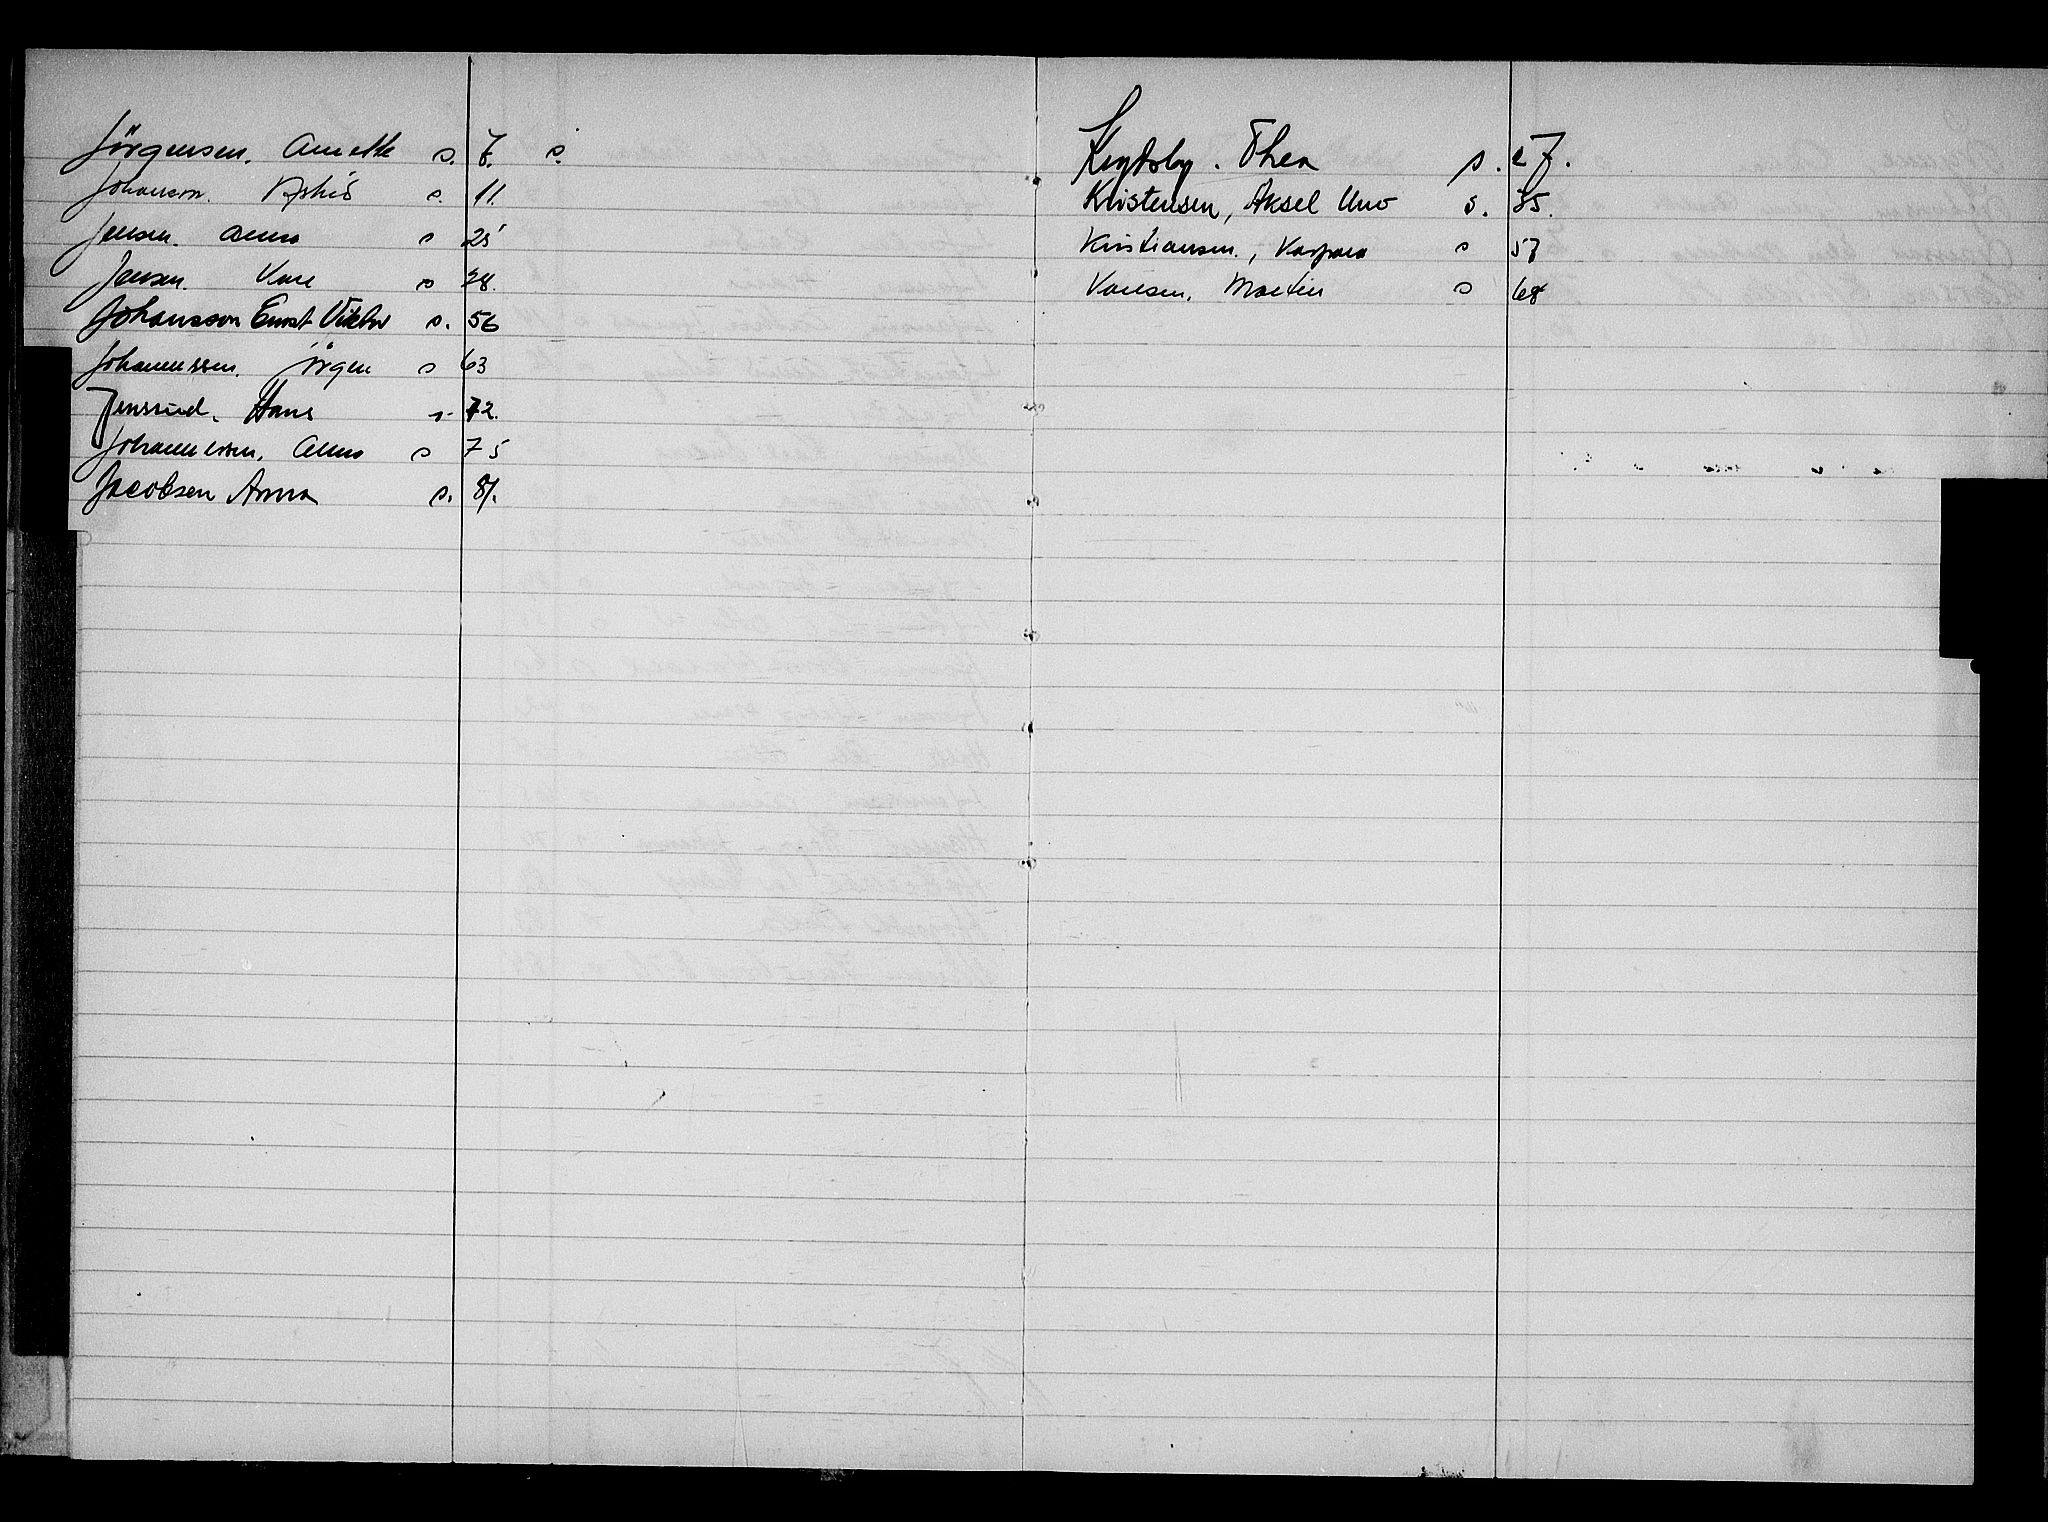 Jörgensen. Anette s. 7. s.
Johansen. s. 11.
Jensen. Anna s 25
Jensen. Kare s 28.
Johansson Ernst Viktor s. 56
Johannessen. Jörgen s 63
Jenssud. Hans s. 72.
Johannessen. Anna s 75
Jacobsen Anna s. 81.
Thea s. 27.
Kristensen, Aksel Uno s. 35.
Kristiansen., Kaspara s 57
Karlsen, Martin s 68